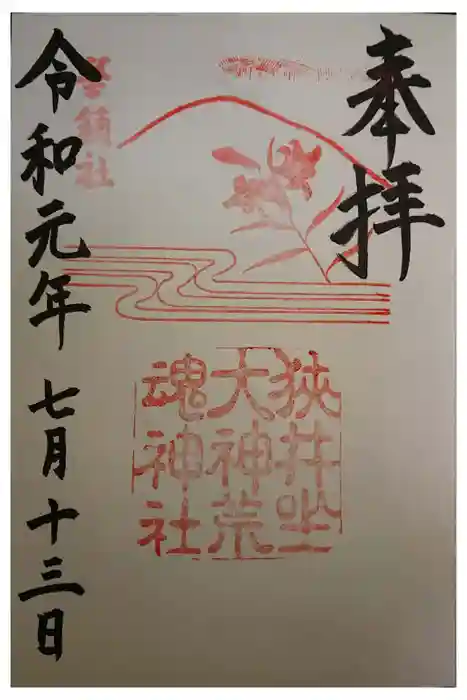 奉拝
狭井坐
大神荒
魂神社
令和元年 七月十三日